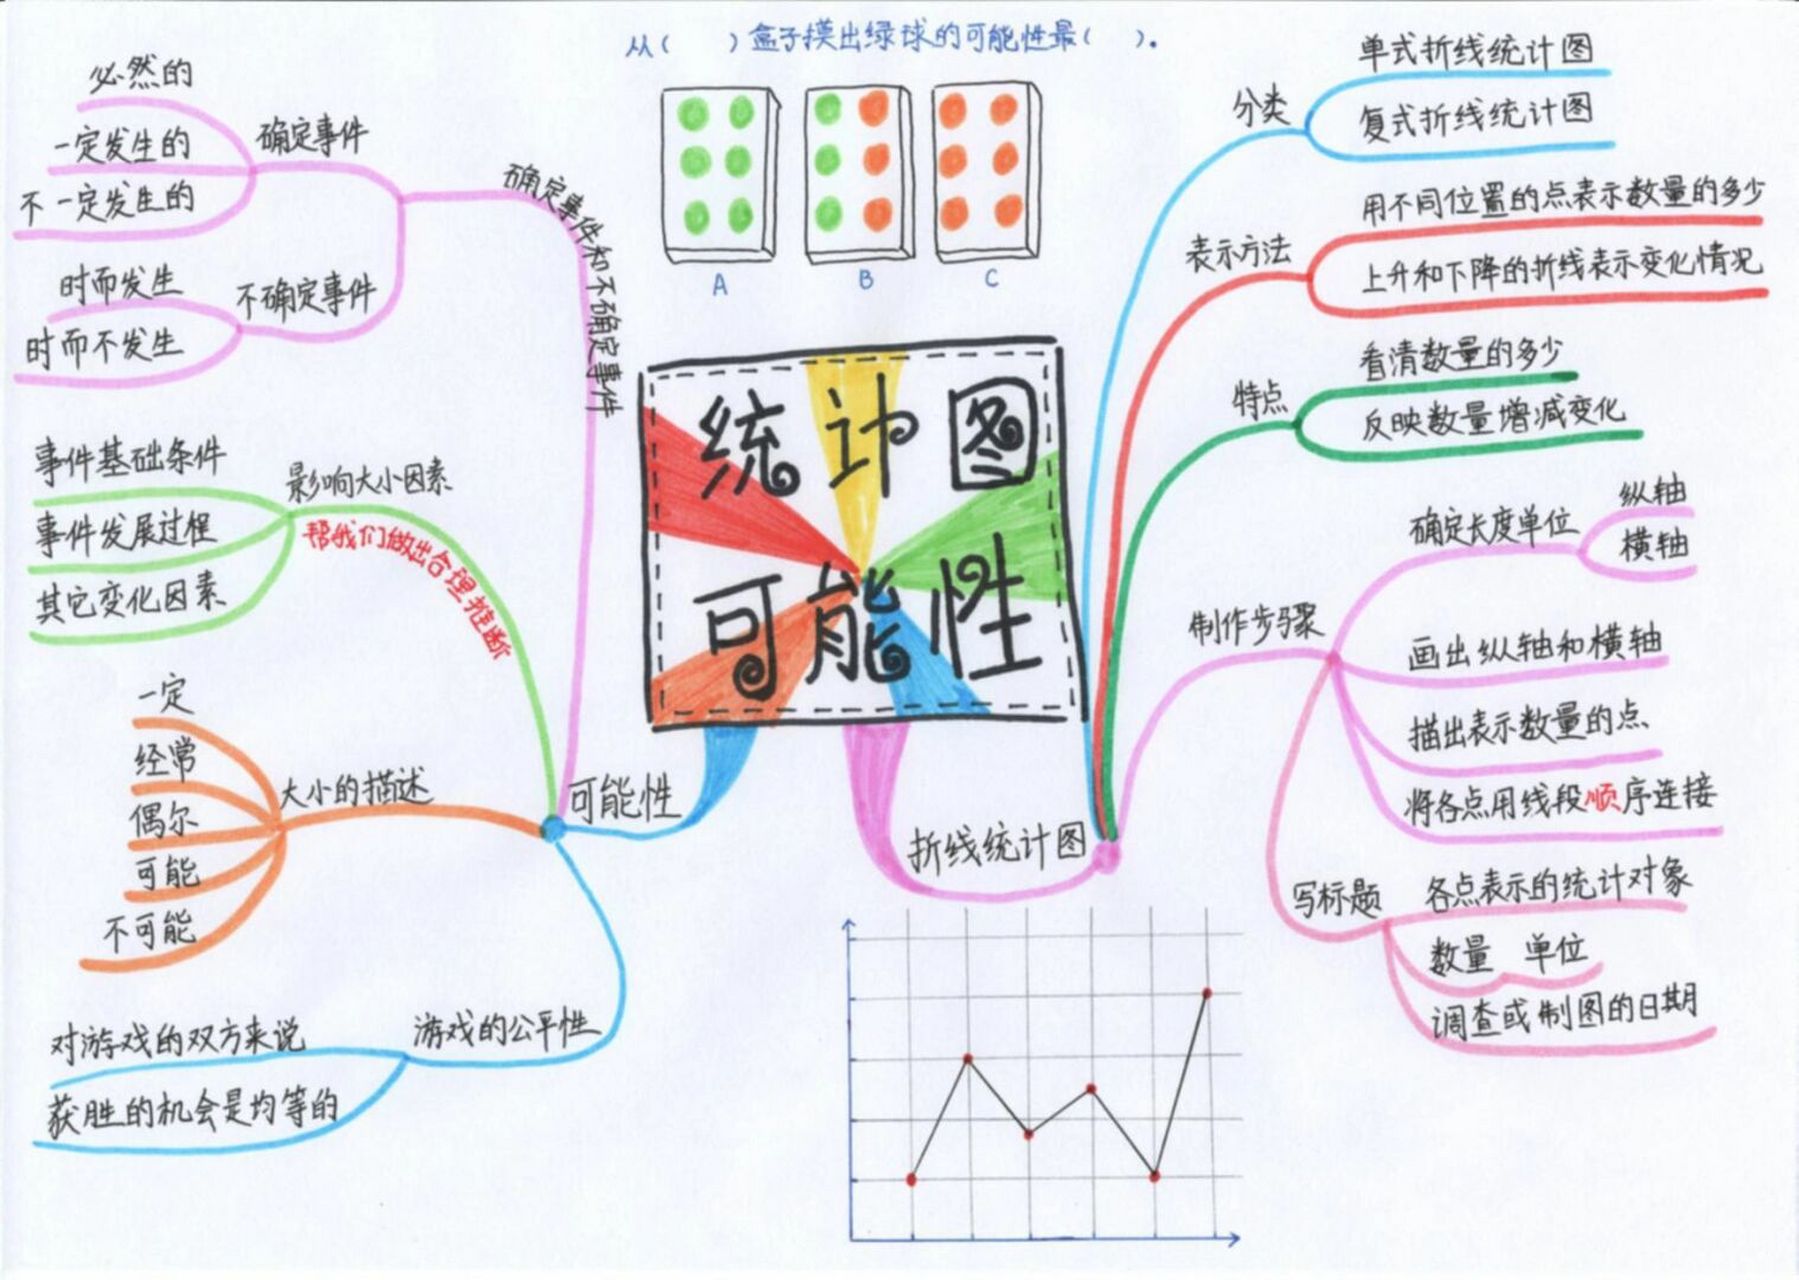 从（ ）盒子摸出绿球的可能性最（ ）。
A
B
C
统计图
可能性
可能性
确定事件和不确定事件
确定事件
必然的
一定发生的
不一定发生的
不确定事件
时而发生
时而不发生
影响大小因素
帮我们做出合理推断
事件基础条件
事件发展过程
其它变化因素
大小的描述
一定
经常
偶尔
可能
不可能
游戏的公平性
对游戏的双方来说
获胜的机会是均等的
折线统计图
分类
单式折线统计图
复式折线统计图
表示方法
用不同位置的点表示数量的多少
上升和下降的折线表示变化情况
特点
看清数量的多少
反映数量增减变化
制作步骤
确定长度单位
纵轴
横轴
画出纵轴和横轴
描出表示数量的点
将各点用线段顺序连接
写标题
各点表示的统计对象
数量 单位
调查或制图的日期